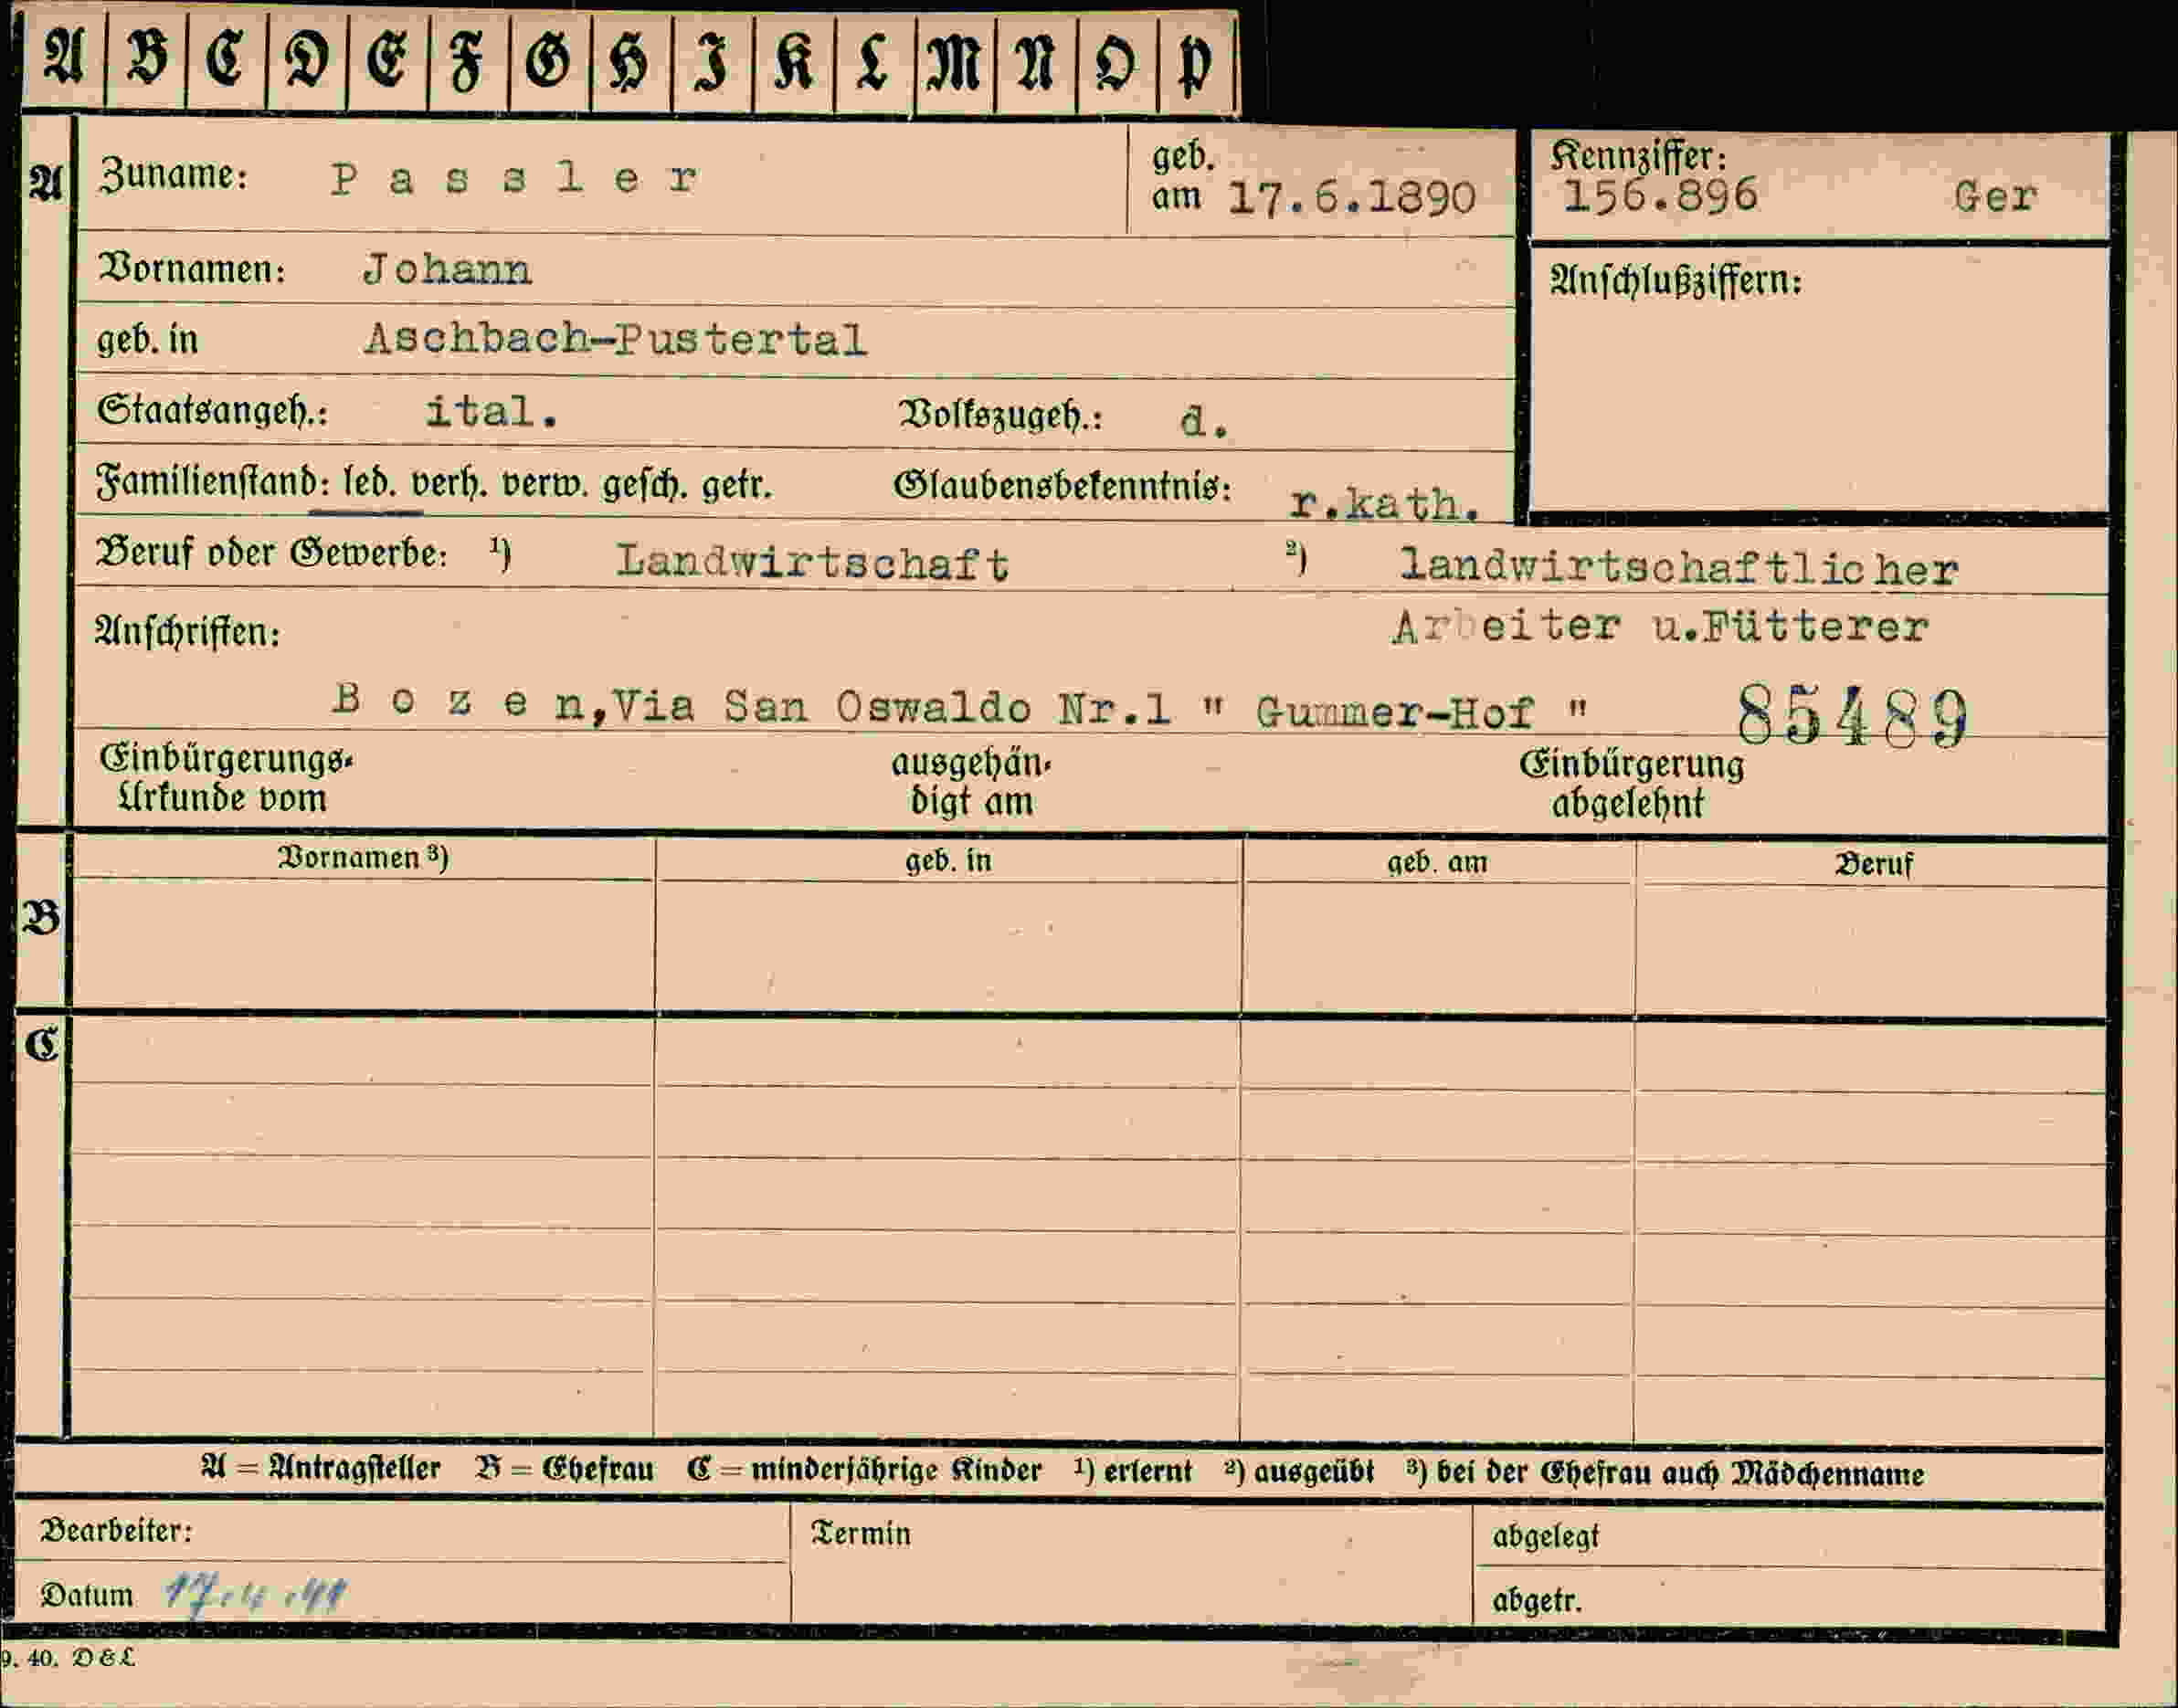 A B C D E F G H I K L M N O P
A Zuname: P a s s l e r geb. am 17.6.1890 Kennziffer: 156.896 Ger
Vornamen: Johann Anschlußziffern:
geb. in Aschbach-Pustertal
Staatsangeh.: ital. Volkszugeh.: d.
Familienstand: led. verh. verw. gesch. getr. Glaubensbekenntnis: r.kath.
Beruf oder Gewerbe: ¹) Landwirtschaft ²) landwirtschaftlicher
Anschriften: Arbeiter u.Fütterer
B o z e n,Via San Oswaldo Nr.1 " Gummer-Hof " 85489
Einbürgerungs- ausgehän- Einbürgerung
Urkunde vom digt am abgelehnt
Vornamen ³) geb. in geb. am Beruf
B
C
A = Antragsteller B = Ehefrau C = minderjährige Kinder ¹) erlernt ²) ausgeübt ³) bei der Ehefrau auch Mädchenname
Bearbeiter: Termin abgelegt
Datum 17.4.41 abgetr.
9. 40. D & L